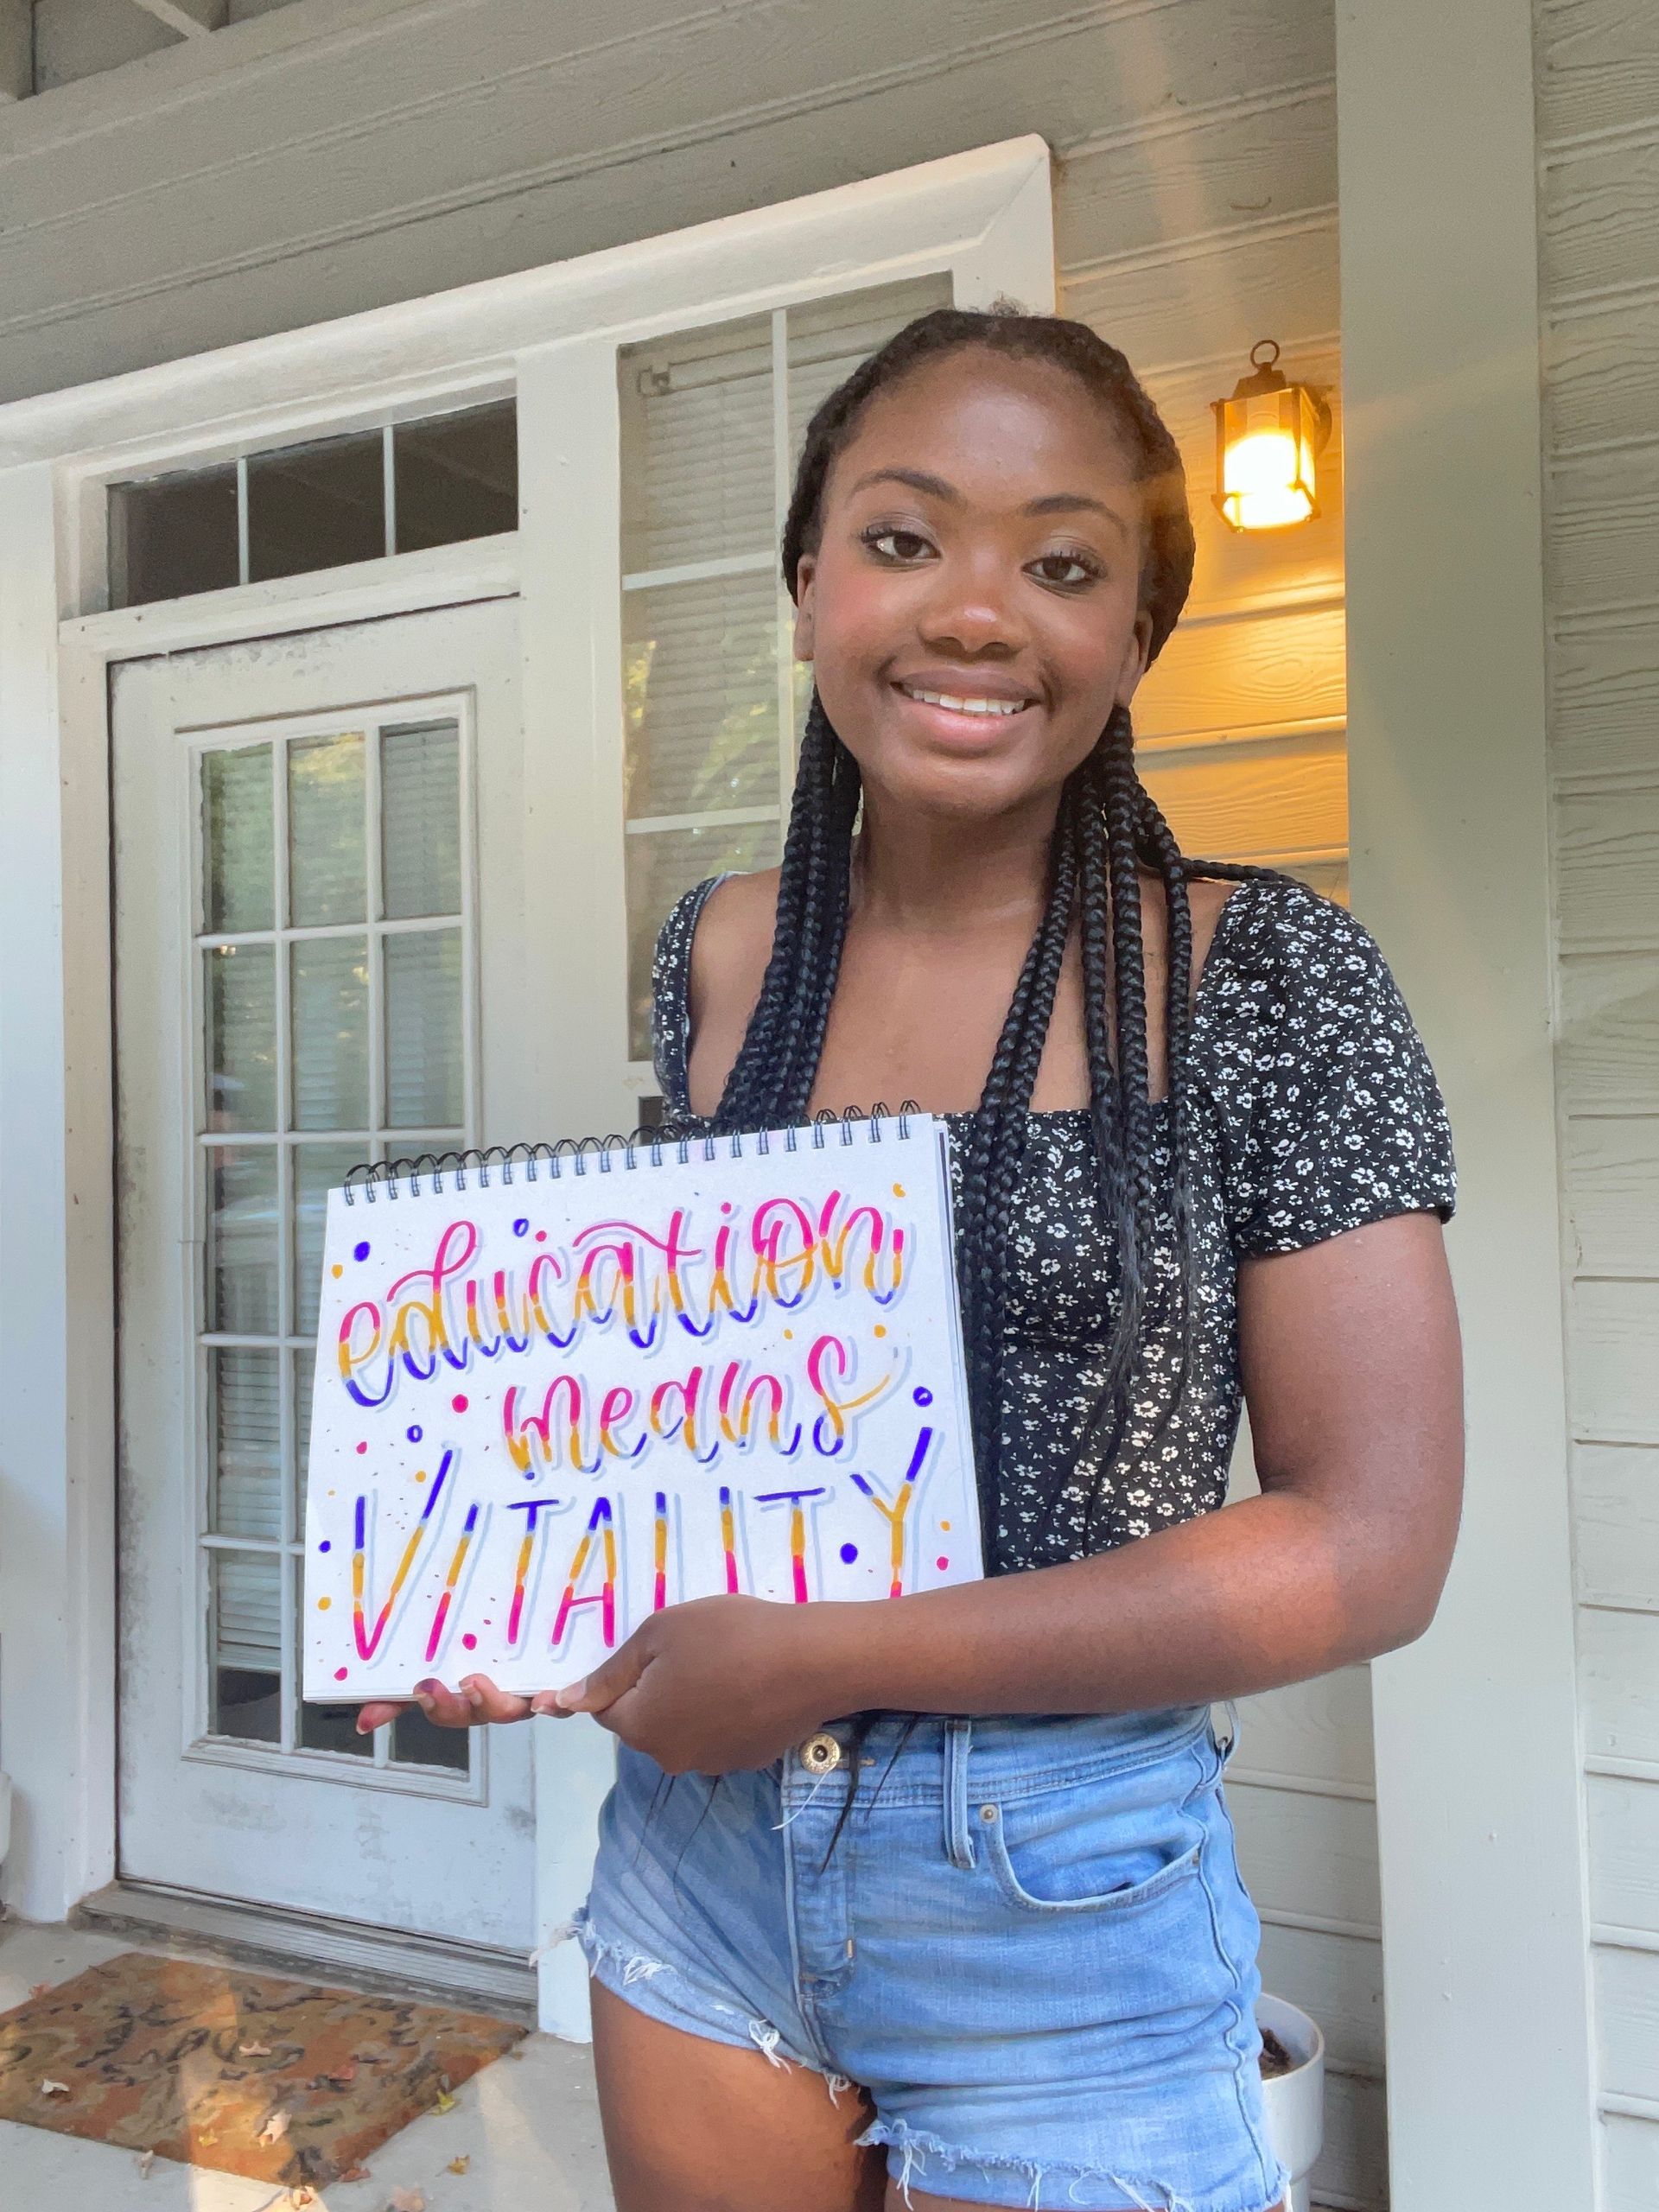 education
means
VITALITY